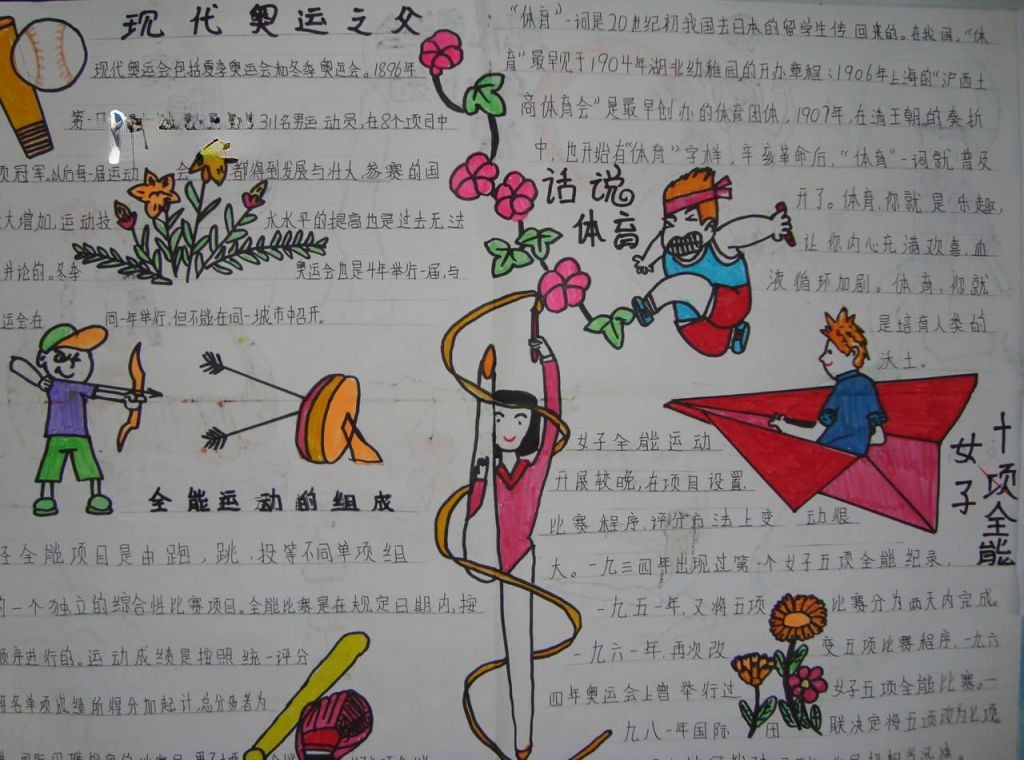 现代奥运之父
现代奥运会包括夏季奥运会和冬季奥运会。1896年
第一
311名男运动员,在8个项目中
项冠军。以后每一届运动会 都得到发展与壮大,参赛的国
大增加,运动技 水水平的提高也是过去无法
并论的。冬季 奥运会也是4年举行一届,与
运会在 同一年举行,但不能在同一城市中召开。
全能运动的组成
全能项目是由跑,跳,投等不同单项组
的一个独立的综合性比赛项目。全能比赛是在规定日期内,按
顺序进行的。运动成绩是按照统一评分
单项成绩所得分加起计,总分多者为
“体育”一词是20世纪初我国去日本的留学生传回来的。在我国,“体
育”最早见于1904年湖北幼稚园的开办章程;1906年上海的“沪西士
商体育会”是最早创办的体育团体。1907年,在清王朝的奏折
中,也开始有“体育”字样,辛亥革命后,“体育”一词就普及
开了。体育,你就是乐趣,
让你内心充满欢喜,血
液循环加剧。体育,你就
是培育人类的
沃土。
话说
体育
女子
十项全能
女子全能运动
开展较晚,在项目设置,
比赛程序,评分方法上变动很
大。一九三四年出现过第一个女子五项全能纪录,
一九五一年,又将五项比赛分为两天内完成。
一九六一年,再次改变五项比赛程序,一九六
四年奥运会上曾举行过女子五项全能比赛。一
九八一年国际田联决定将五项改为七项。